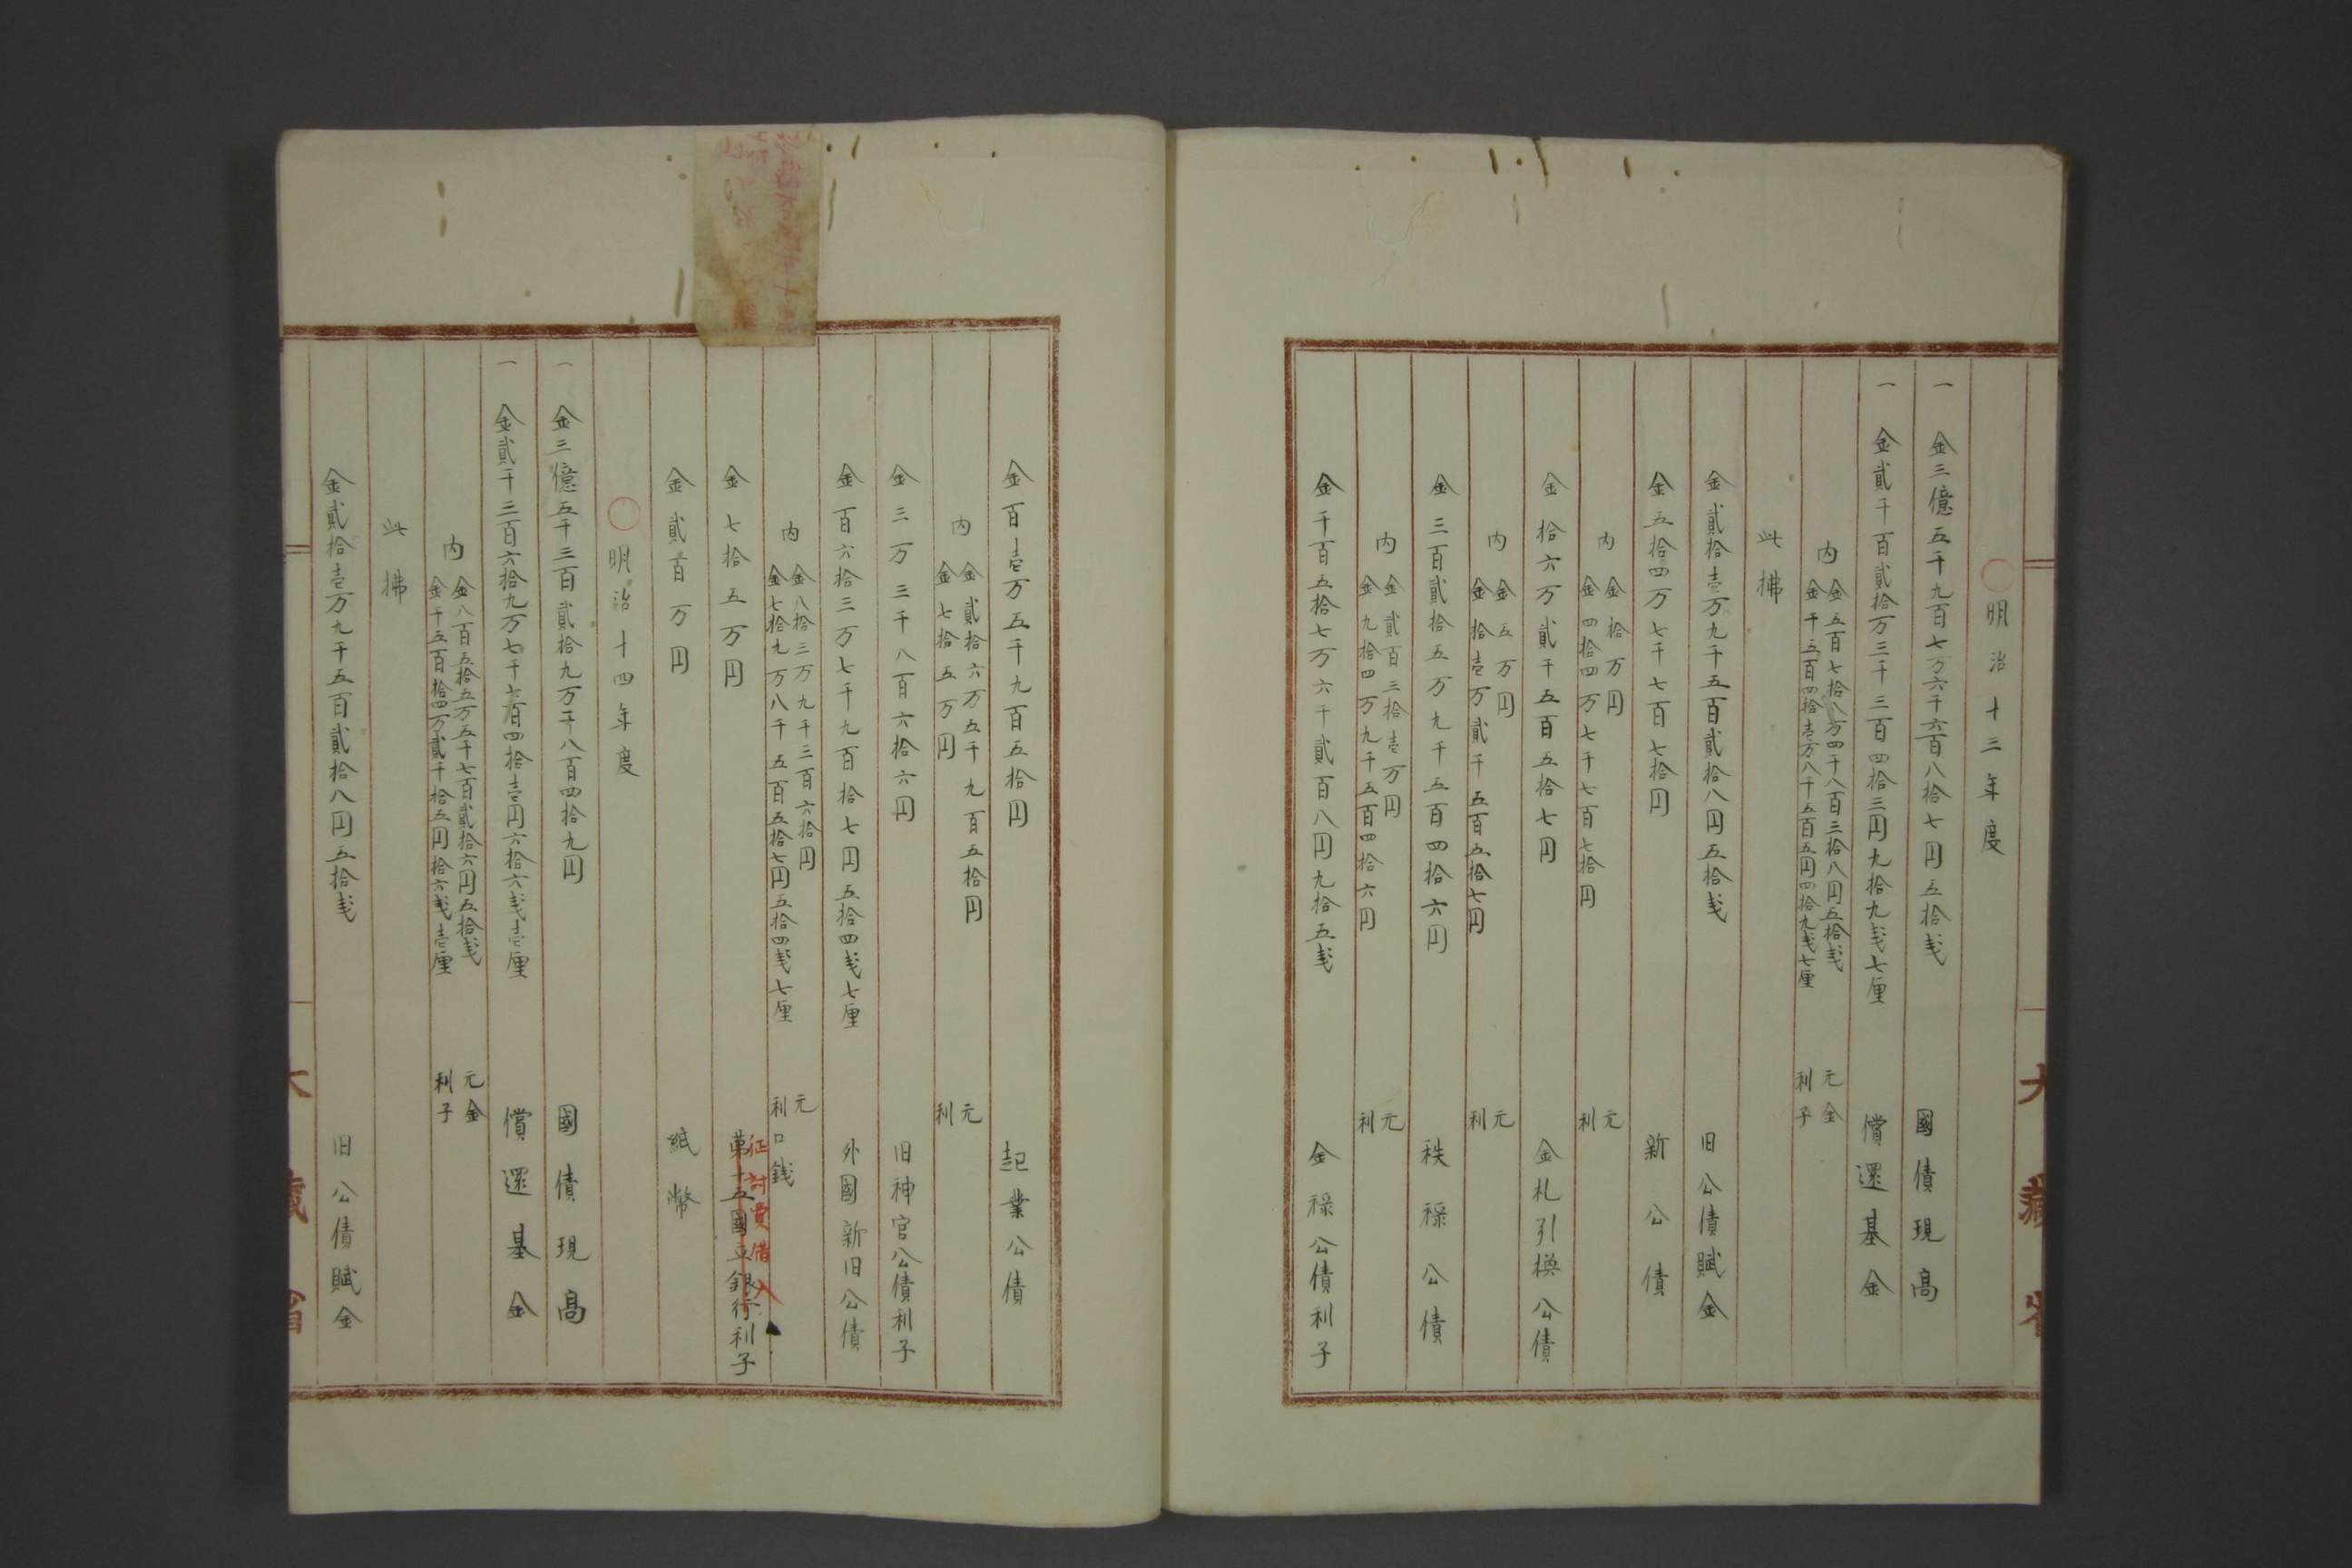 〇明治十三年度
一 金三億五千九百七万六千六百八拾七円五拾戔 國債現高
一 金貳千百貳拾万三千三百四拾三円九拾九戔七厘 償還基金
内 金五百七拾八万四千八百三拾八円五拾戔 元金
金千五百四拾壱万八千五百五円四拾九戔七厘 利子
此拂
金貳拾壱万九千五百貳拾八円五拾戔 旧公債賦金
金五拾四万七千七百七拾円 新公債
内 金拾万円 元
金四拾四万七千七百七拾円 利
金拾六万貳千五百五拾七円 金札引換公債
内 金五万円 元
金拾壱万貳千五百五拾七円 利
金三百貳拾五万九千五百四拾六円 秩禄公債
内 金貳百三拾壱万円 元
金九拾四万九千五百四拾六円 利
金千百五拾七万六千貳百八円九拾五戔 金禄公債利子
金百壱万五千九百五拾円 起業公債
内 金貳拾六万五千九百五拾円 元
金七拾五万円 利
金三万三千八百六拾六円 旧神官公債利子
金百六拾三万七千九百拾七円五拾四戔七厘 外國新旧公債
内 金八拾三万九千三百六拾円 元
金七拾九万八千五百五拾七円五拾四戔七厘 利口銭
征討費借入
金七拾五万円 第十五國立銀行利子
金貳百万円 紙幣
〇明治十四年度
一 金三億五千三百貳拾九万千八百四拾九円 國債現高
一 金貳千三百六拾九万七千七百四拾壱円六拾六戔壱厘 償還基金
内 金八百五拾五万五千七百貳拾六円五拾戔 元金
金千五百拾四万貳千拾五円拾六戔壱厘 利子
此拂
金貳拾壱万九千五百貳拾八円五拾戔 旧公債賦金
大藏省